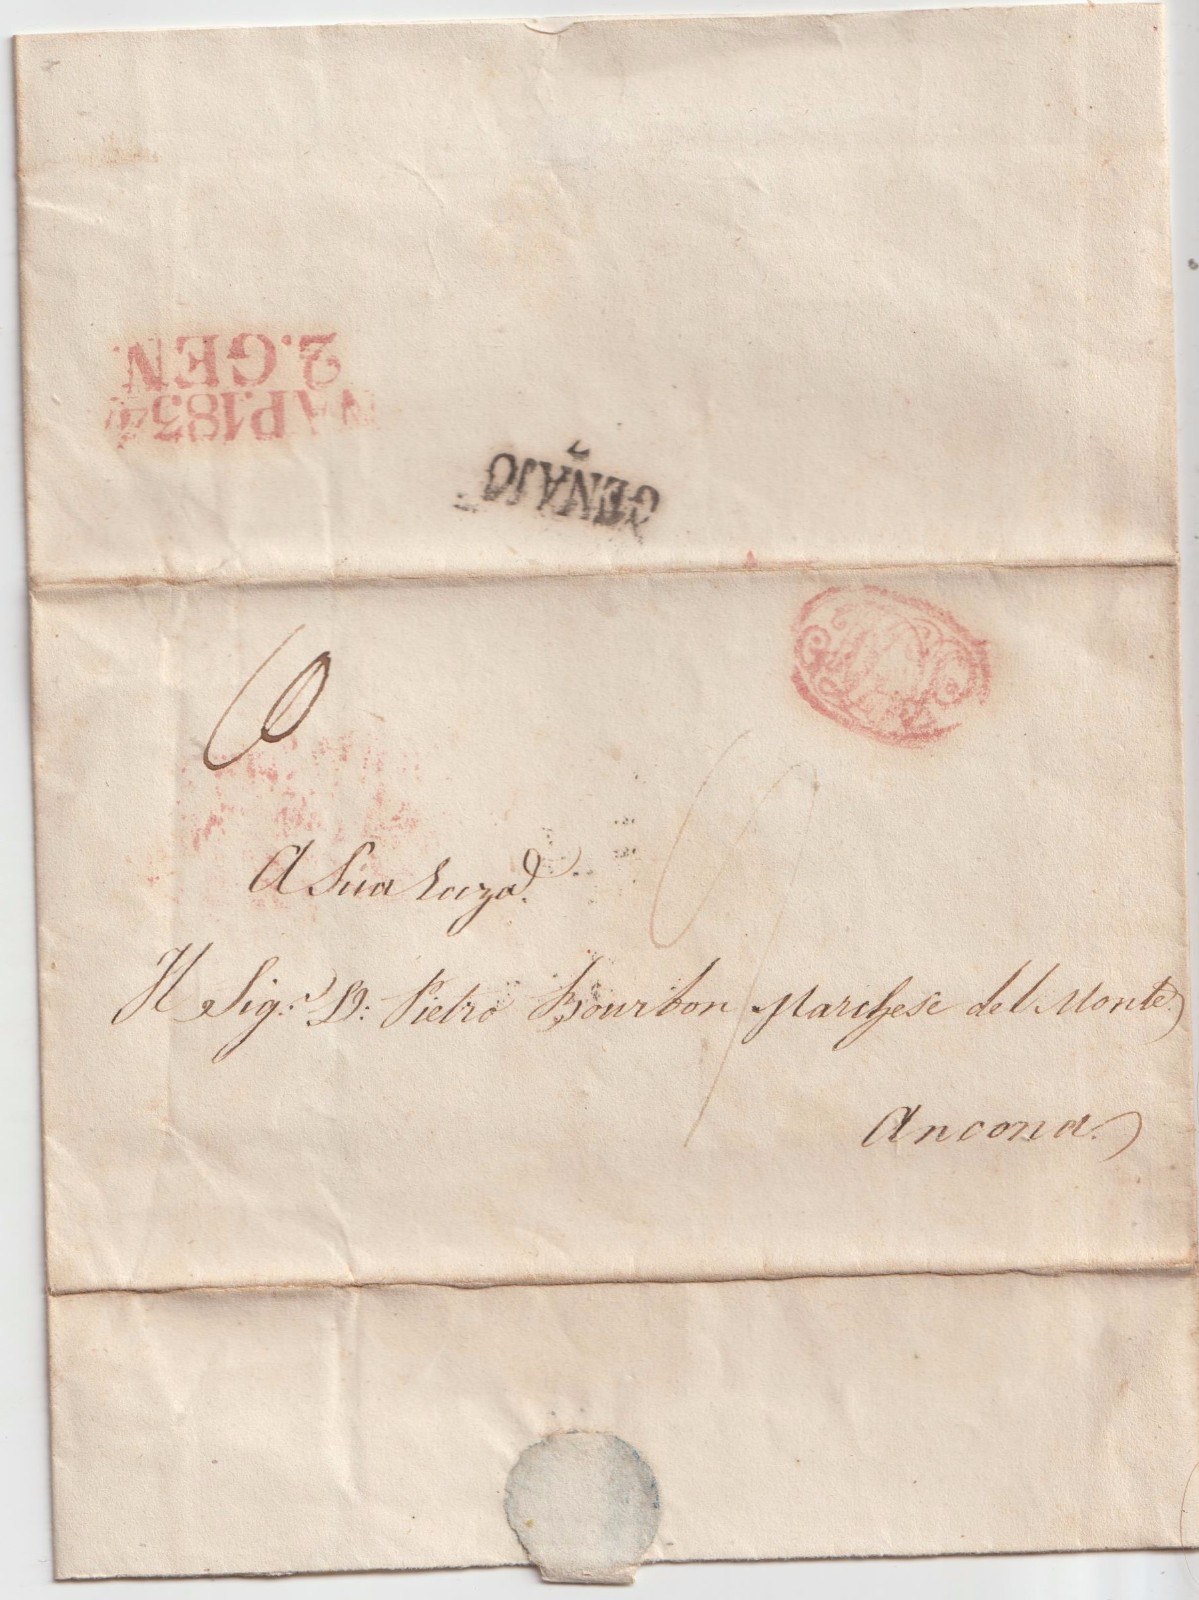 2.GEN.
NAP.1834
GENAJO
A Sua Ecza.
Il Sig.r D: Pietro Bourbon Marchese del Monte
Ancona.